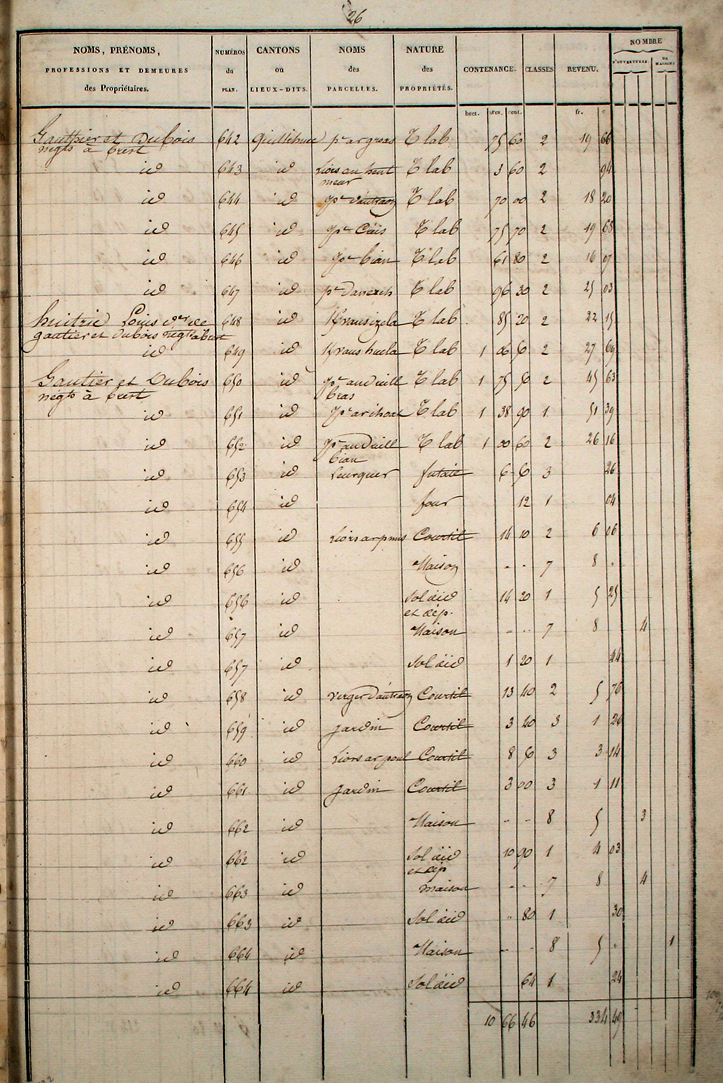 26
NOMS, PRÉNOMS, PROFESSIONS ET DEMEURES des Propriétaires. NUMÉROS du PLAN. CANTONS ou LIEUX-DITS. NOMS des PARCELLES. NATURE des PROPRIÉTÉS. CONTENANCE. CLASSES. REVENU. NOMBRE D'OUVERTURES DE MAISONS
hect. ares. cent. fr. c.
Gauthier et Dubois 642 p.r ar groas T lab 75 60 2 19 66
négts à brest
id 643 id Liors an heut T lab 3 60 2 94
meur
id 644 id p.r d'autraou T lab 70 00 2 18 20
id 645 id p.r T lab 75 70 2 19 68
id 646 id p.r bian T lab 61 80 2 16 07
id 647 id T lab 96 30 2 25 03
Louis 648 id T lab 85 20 2 22 15
gautier et dubois négts a brest
id 649 id T lab 1 06 50 2 27 69
Gautier et Dubois 650 id p.r T lab 1 75 50 2 45 63
négts à brest bras
id 651 id T lab 1 38 90 1 51 39
id 652 id p.r T lab 1 00 60 2 26 16
bian
id 653 id Leurguer futaie 6 50 3 26
id 654 id four 12 1 04
id 655 id Courtil 14 10 2 6 06
id 656 id Maison - - 7 8 -
id 656 id Sol did 14 20 1 5 25
et dép.
id 657 id Maison - - 7 8 4
id 657 id Sol did 1 20 1 44
id 658 id verger d'autraou Courtil 13 40 2 5 76
id 659 id jardin Courtil 3 40 3 1 26
id 660 id Liors ar poul Courtil 8 50 3 3 14
id 661 id jardin Courtil 3 00 3 1 11
id 662 id Maison - - 8 5 3
id 662 id Sol did 10 90 1 4 03
et dép
id 663 id maison - - 7 8 4
id 663 id Sol did - 80 1 30
id 664 id Maison - - 8 5 - 1
id 664 id Sol did 64 1 24
10 66 46 334 49